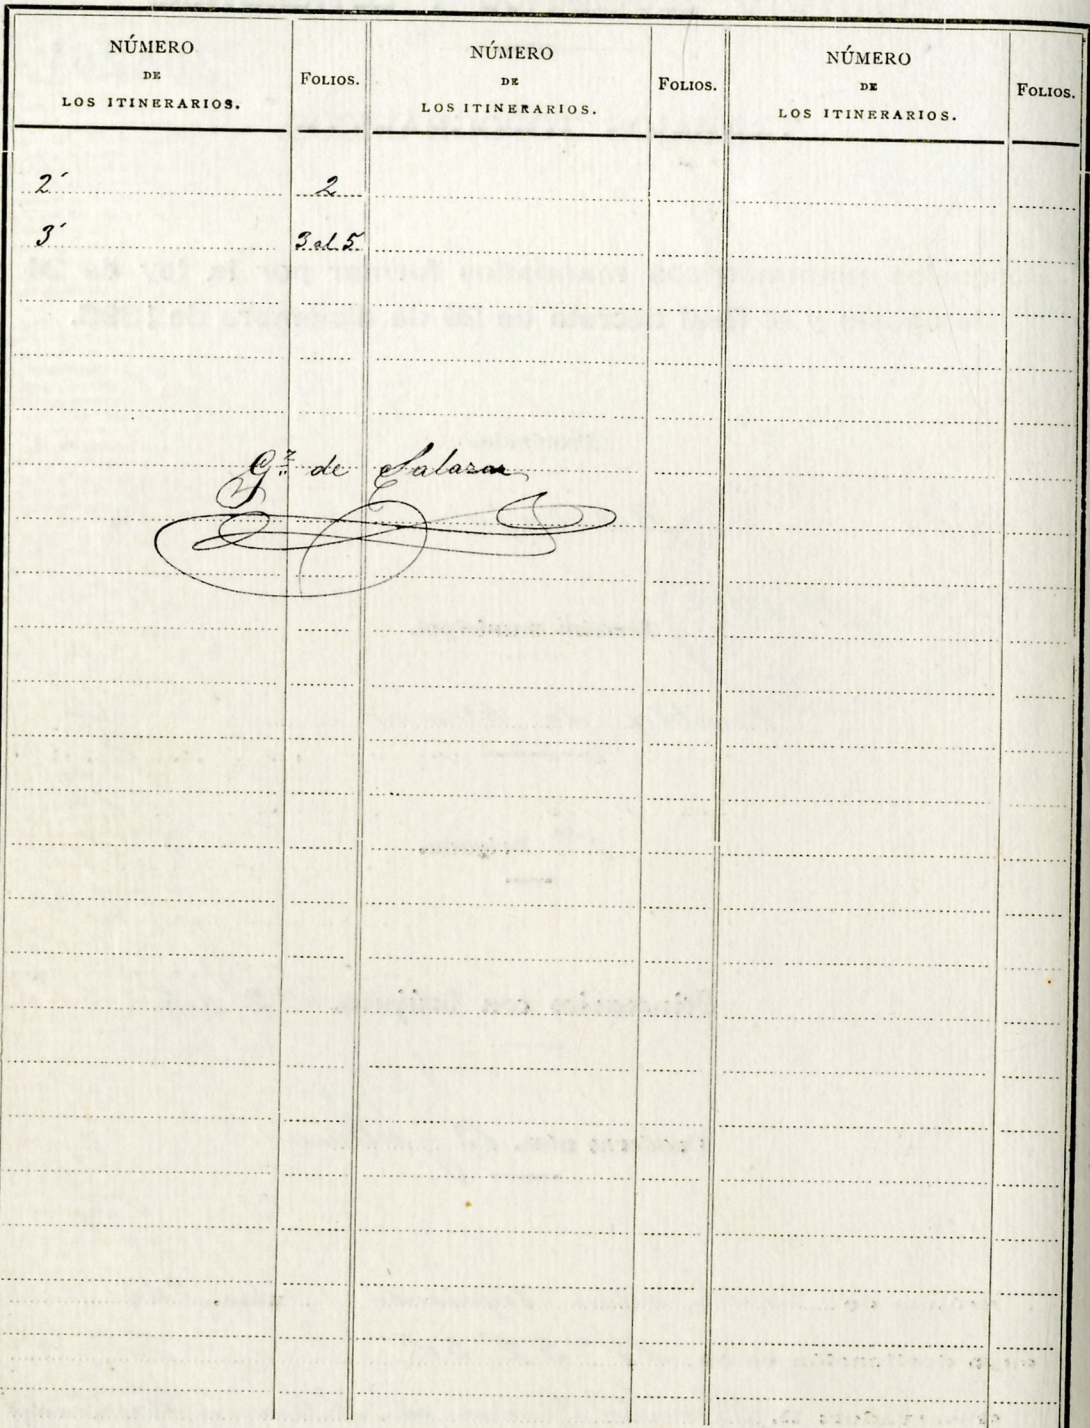 NÚMERO
DE
LOS ITINERARIOS.
FOLIOS.
NÚMERO
DE
LOS ITINERARIOS.
FOLIOS.
NÚMERO
DE
LOS ITINERARIOS.
FOLIOS.
2´ 2
3´ 3 al 5
Gz de Salazar